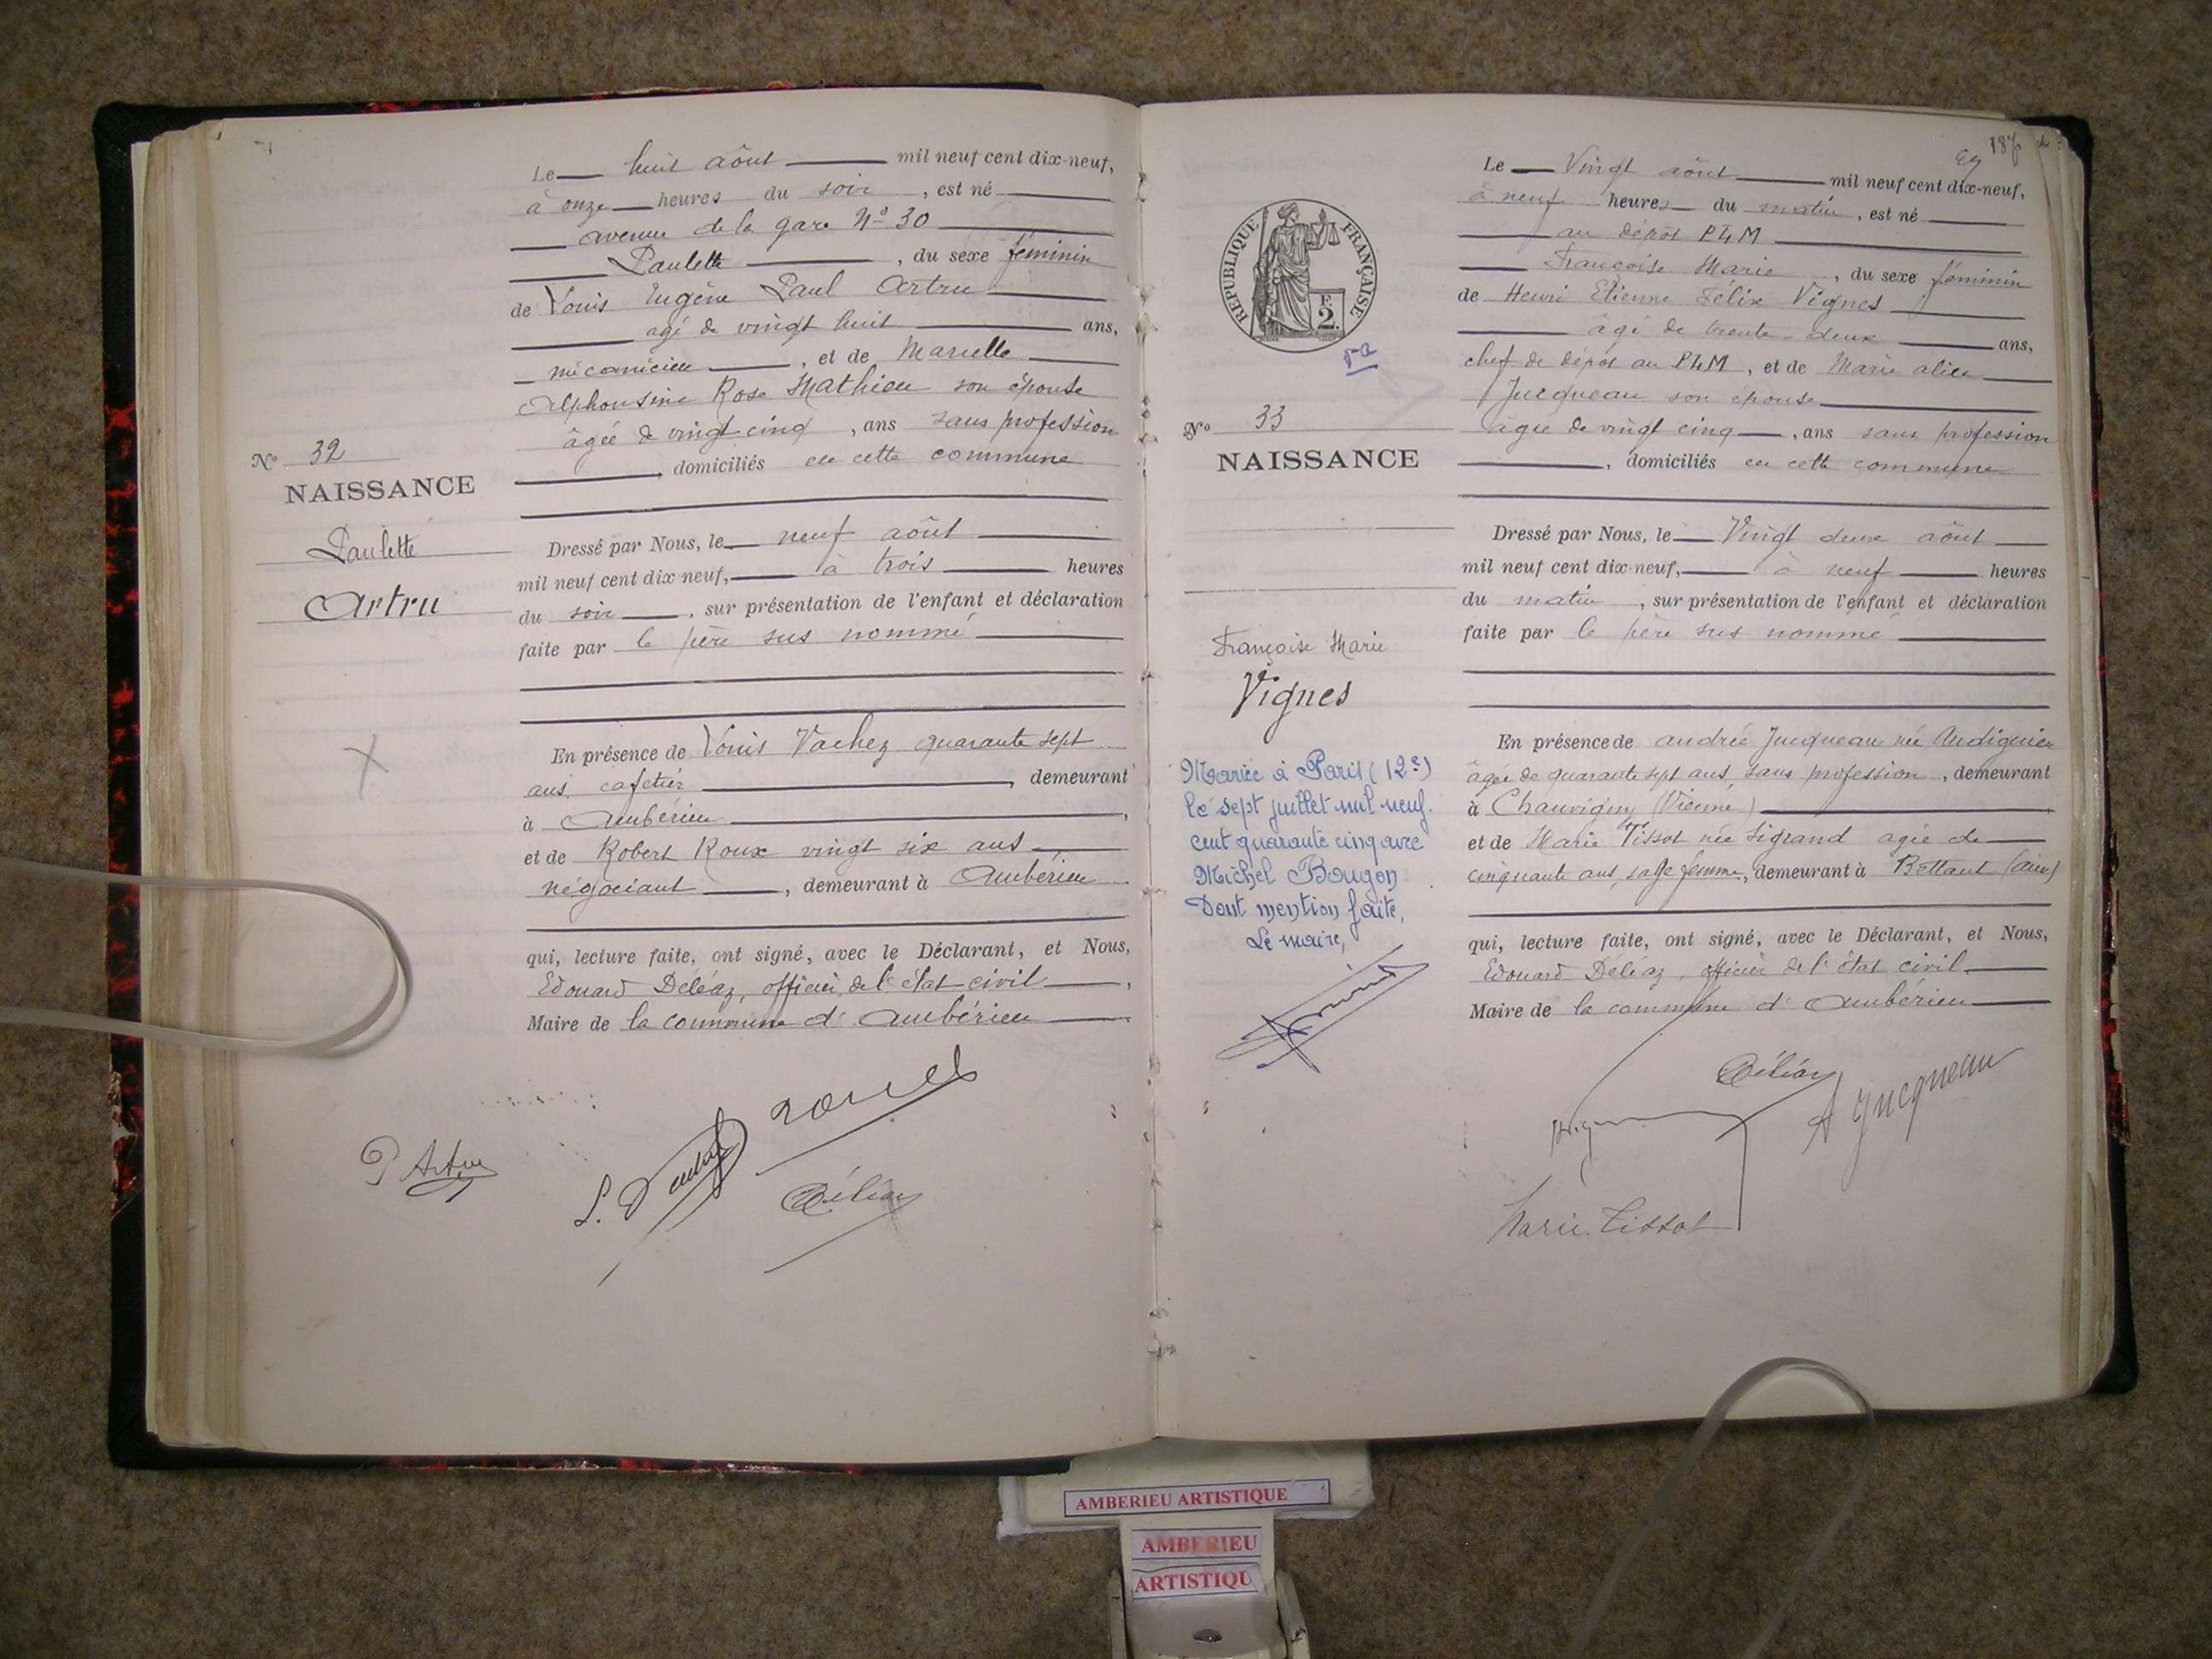 Le huit aôut mil neuf cent dix-neuf,
à onze heures du soir, est né
avenue de la gare No 30
Paulette, du sexe féminin
de Louis Eugène Paul Artru
agé de vingt huit ans,
mécanicien, et de Marcelle
Alphonsine Rose Mathieu son épouse
âgée de vingt cinq, ans sans profession
, domiciliés en cette commune
No 32
NAISSANCE
Paulette
Artru
Dressé par Nous, le neuf aôut
mil neuf cent dix neuf, à trois heures
du soir, sur présentation de l'enfant et déclaration
faite par le père sus nommé
En présence de Louis Vachez quarante sept
ans cafetier, demeurant
à Ambérieu,
et de Robert Roux vingt six ans
négociant, demeurant à Ambérieu
qui, lecture faite, ont signé, avec le Déclarant, et Nous,
Edouard Déléaz, officier de l'état civil,
Maire de la commune d'Ambérieu
P Artru
Déléaz
187
69
Le Vingt aôut mil neuf cent dix-neuf,
à neuf heures du matin, est né
au dépot PLM
Françoise Marie, du sexe féminin
de Henri Etienne Félix Vignes
âgé de trente-deux ans,
chef de dépot au PLM, et de Marie alice
Jucqueau son épouse
agée de vingt cinq, ans sans profession
, domiciliés en cette commune
RÉPUBLIQUE FRANÇAISE
F.
2.
No 33
NAISSANCE
Françoise Marie
Vignes
Mariée à Paris (12e)
le sept juillet mil neuf
cent quarante cinq avec
Michel Bougon
Dont mention faite,
Le maire,
Dressé par Nous, le Vingt deux aôut
mil neuf cent dix-neuf, à neuf heures
du matin, sur présentation de l'enfant et déclaration
faite par le père sus nommé
En présence de andrée Jucqueau née Audiguier
âgée de quarante sept ans, sans profession, demeurant
à Chauvigny (Vienne)
et de Marie Tissot née Sigrand agée de
cinquante ans, sage femme, demeurant à Bettant (ain)
qui, lecture faite, ont signé, avec le Déclarant, et Nous,
Edouard Déléaz, officier de l'état civil
Maire de la commune d'Ambérieu
Déléaz
A Jucqueau
Vignes
Marie Tissot
AMBERIEU ARTISTIQUE
AMBERIEU
ARTISTIQU